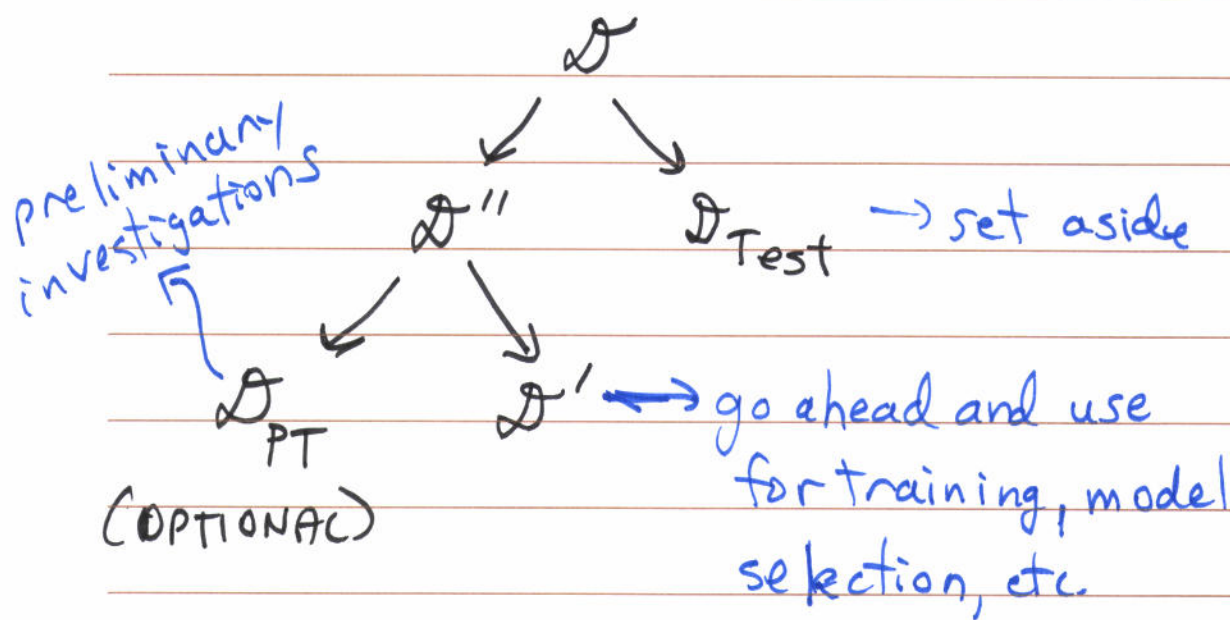 𝒟
preliminary
investigations
𝒟''
𝒟Test
→ set aside
𝒟PT
(OPTIONAL)
𝒟' ↔ go ahead and use
for training, model
selection, etc.